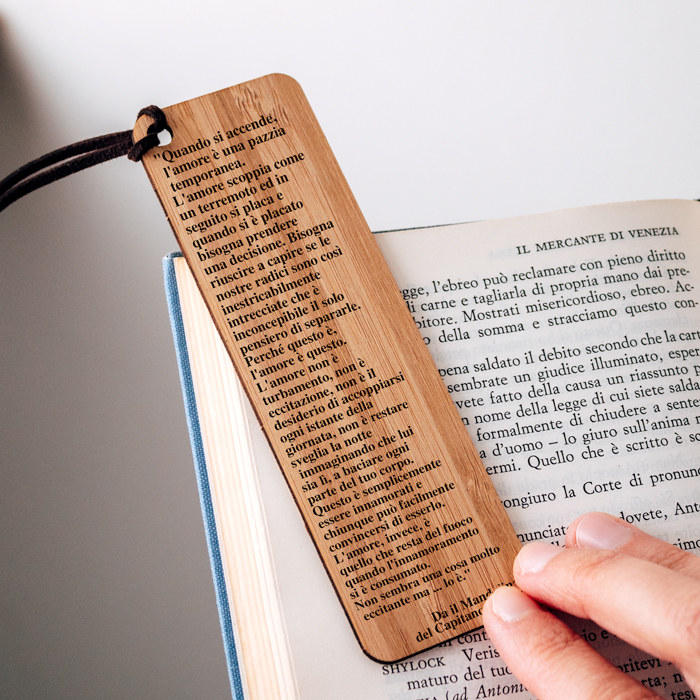 "Quando si accende,
l'amore è una pazzia
temporanea.
L'amore scoppia come
un terremoto ed in
seguito si placa e
quando si è placato
bisogna prendere
una decisione. Bisogna
riuscire a capire se le
nostre radici sono così
inestricabilmente
intrecciate che è
inconcepibile il solo
pensiero di separarle.
Perché questo è,
l'amore è questo.
L'amore non è
turbamento, non è
eccitazione, non è il
desiderio di accoppiarsi
ogni istante della
giornata, non è restare
sveglia la notte
immaginando che lui
sia lì, a baciare ogni
parte del tuo corpo.
Questo è semplicemente
essere innamorati e
chiunque può facilmente
convincersi di esserlo.
L'amore, invece, è
quello che resta del fuoco
quando l'innamoramento
si è consumato.
Non sembra una cosa molto
eccitante ma ... lo è."
Da il
del
IL MERCANTE DI VENEZIA
l'ebreo può reclamare con pieno diritto
di carne e tagliarla di propria mano dal pre-
Mostrati misericordioso, ebreo. Ac-
della somma e stracciamo questo con-
pena saldato il debito secondo che la
sembrate un giudice illuminato,
fatto della causa un riassunto
nome della legge di cui siete
formalmente di chiudere a
d'uomo – lo giuro sull'anima
Quello che è scritto è
la Corte di
SHYLOCK
maturo del tuo
(ad